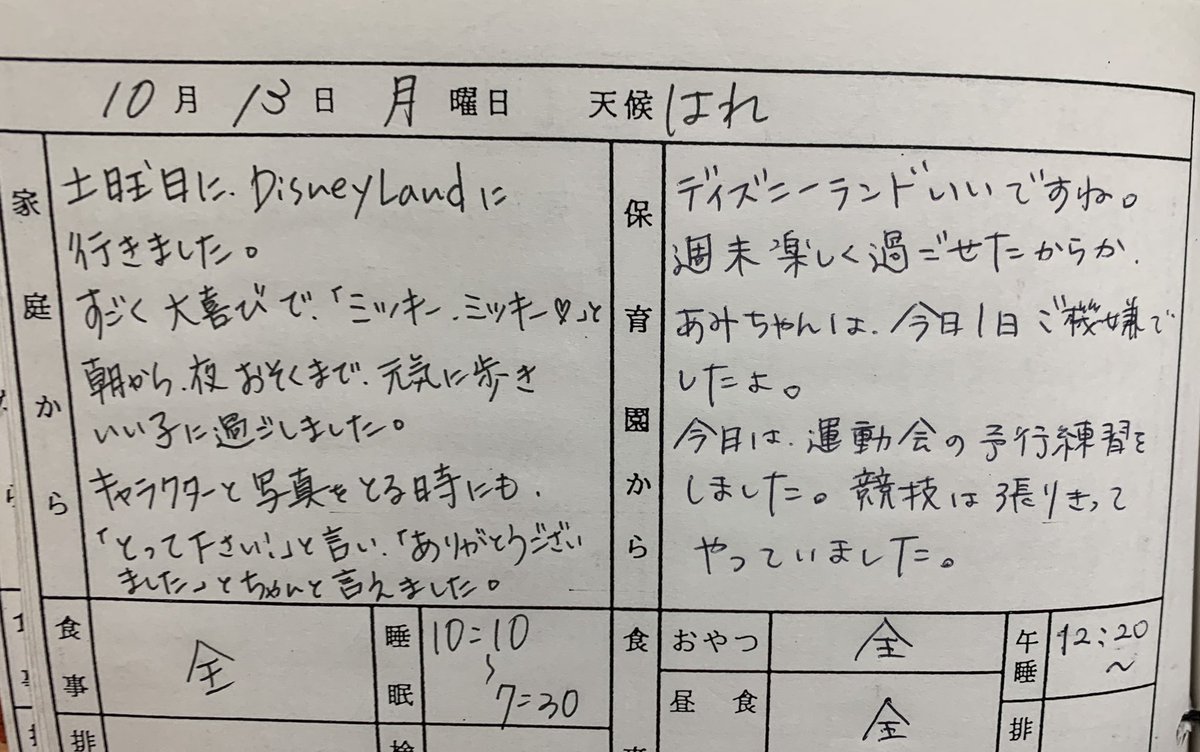 10月 13日 月曜日 天候 はれ
家庭から
土曜日に、DisneyLandに
行きました。
すごく大喜びで、「ミッキー、ミッキー♡」と
朝から、夜おそくまで、元気に歩き
いい子に過ごしました。
キャラクターと写真をとる時にも、
「とって下さい!」と言い、「ありがとうござい
ました」とちゃんと言えました。
保育園から
ディズニーランドいいですね。
週末楽しく過ごせたからか、
あみちゃんは、今日1日ご機嫌で
したよ。
今日は、運動会の予行練習を
しました。競技は張りきって
やっていました。
食事 全
睡眠 10:10
〜
7:30
食
おやつ 全
昼食 全
午睡 12:20
〜
排
排